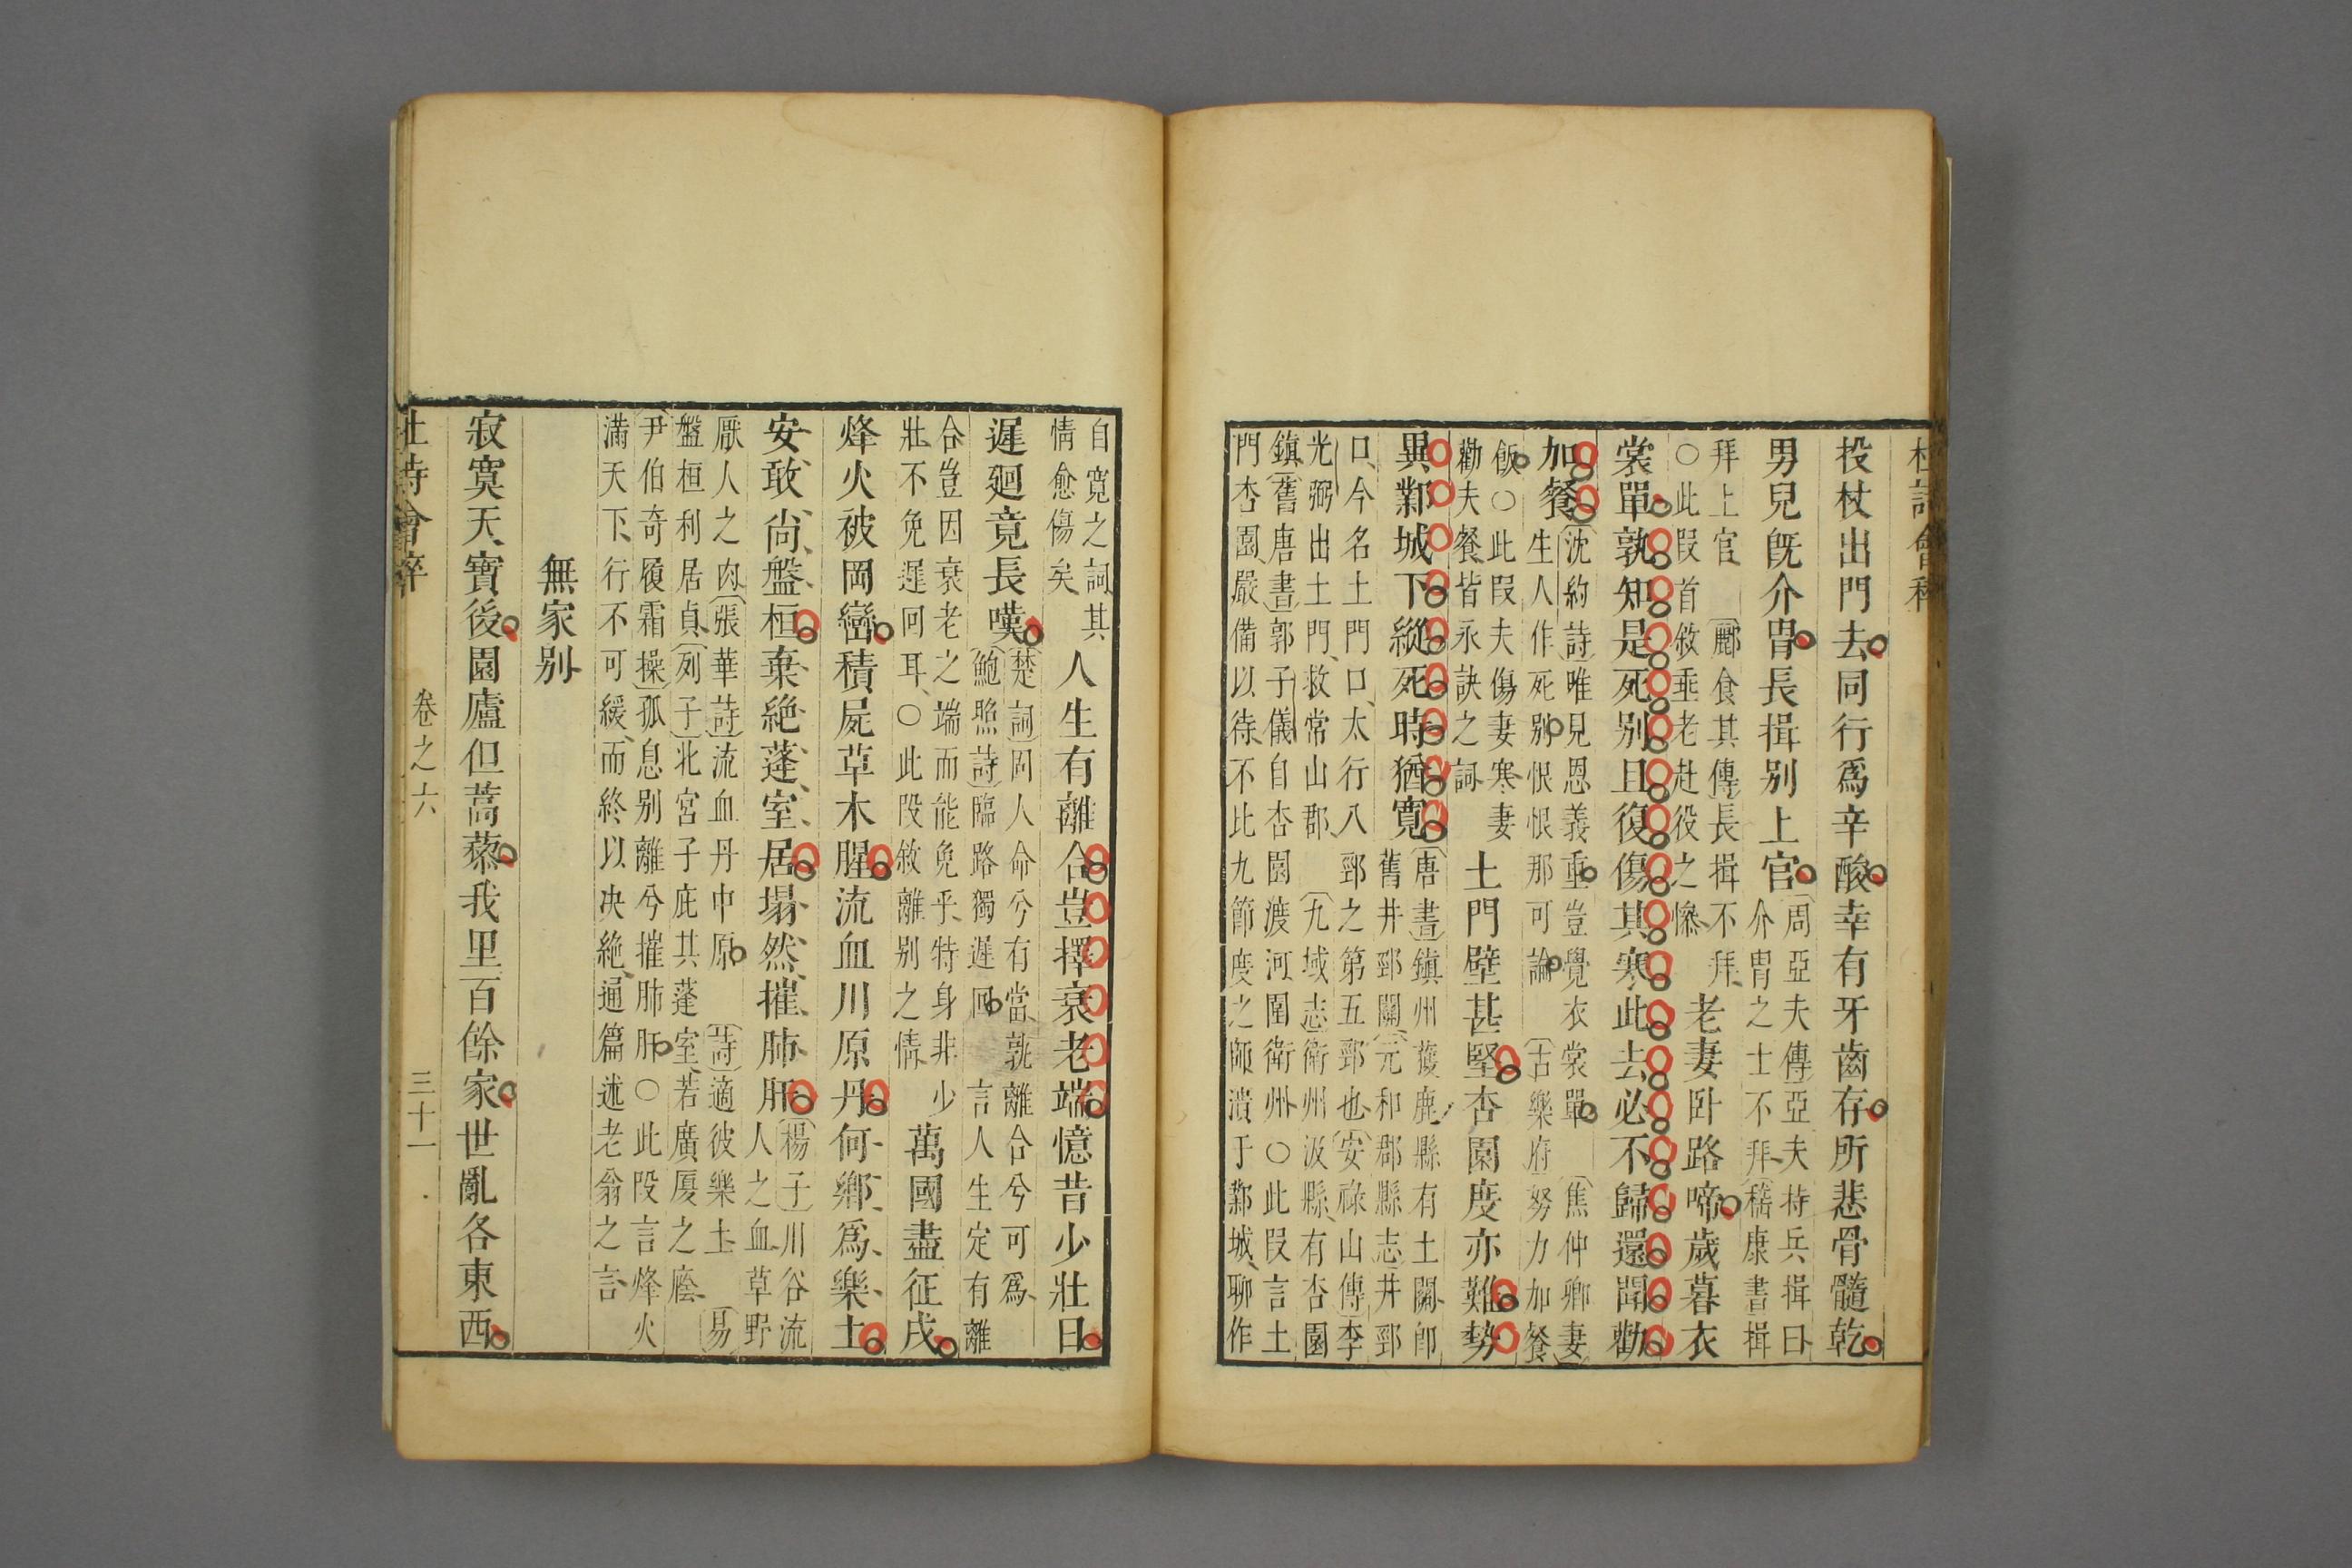 投杖出門去同行爲辛酸幸有牙齒存所悲骨髓乾
男兒旣介胄長揖别上官
周亞夫傳亞夫持兵揖曰
介胄之士不拜嵇康書揖
拜上官 酈食其傳長揖不拜
○此叚首敘垂老赴役之慘
老妻卧路啼歲暮衣
裳單孰知是死别且復傷其寒此去必不歸還聞勸
加餐
沈約詩唯見恩義重豈覺衣裳單 焦仲卿妻
生人作死别恨恨那可論 古樂府努力加餐
飯○此叚夫傷妻寒妻
勸夫餐皆永訣之詞
土門壁甚堅杏園度亦難勢
異鄴城下縱死時猶寬
唐書鎮州獲鹿縣有土關卽
舊井陘關元和郡縣志井陘
口今名土門口太行八陘之第五陘也安祿山傳李
光弼出土門救常山郡 九域志衛州汲縣有杏園
鎮舊唐書郭子儀自杏園渡河圍衛州○此叚言土
門杏園嚴備以待不比九節度之師潰于鄴城聊作
自寬之詞其
情愈傷矣
人生有離合豈擇衰老端憶昔少壯日
遲廻竟長嘆
楚詞固人命兮有當孰離合兮可爲
鮑照詩臨路獨遲回 言人生定有離
合豈因衰老之端而能免乎特身非少
壯不免遲回耳○此段敘離别之情
萬國盡征戍
烽火被岡巒積屍草木腥流血川原丹何鄉爲樂土
安敢尚盤桓棄絶蓬室居塌然摧肺肝
楊子川谷流
人之血草野
厭人之肉張華詩流血丹中原 詩適彼樂土 易
盤桓利居貞列子北宮子庇其蓬室若廣厦之廕
尹伯奇履霜操孤息别離兮摧肺肝○此段言烽火
滿天下行不可緩而終以决絶通篇述老翁之言
無家别
寂寞天寶後園廬但蒿藜我里百餘家世亂各東西
杜詩會稡 卷之六 三十一